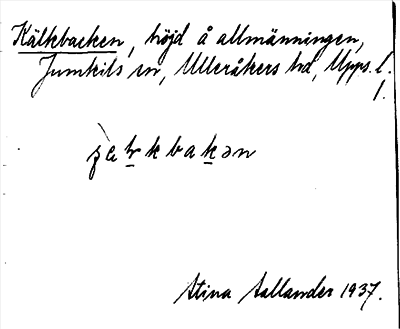 Kälkbacken, höjd å allmänningen,
Jumkils sn, Ulleråkers hd, Upps. l.
1.
kbakən
Stina Sallander 1937.